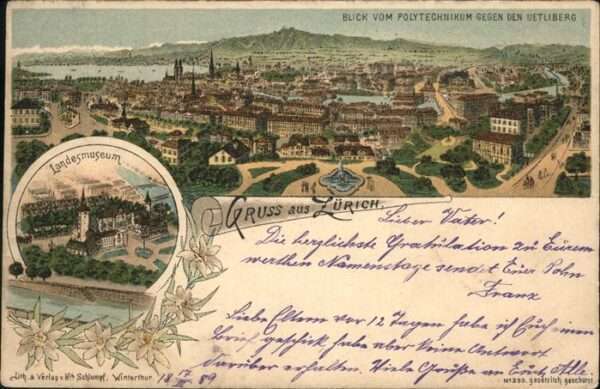 BLICK VOM POLYTECHNIKUM GEGEN DEN UETLIBERG
Landesmuseum
GRUSS aus ZÜRICH.
Lieber Vater!
Die herzlichste Gratulation zu Eurem
werthen Namenstage sendet Euer Sohn
Franz
Liebe Eltern vor 12 Tagen habe ich Euch einen
Brief geschickt, habe aber keine Antwort
darüber erhalten. Viele Grüße an Euch Alle.
Lith. & Verlag v. Hch. Schlumpf, Winterthur
18 89
No 255. gesetzlich geschützt